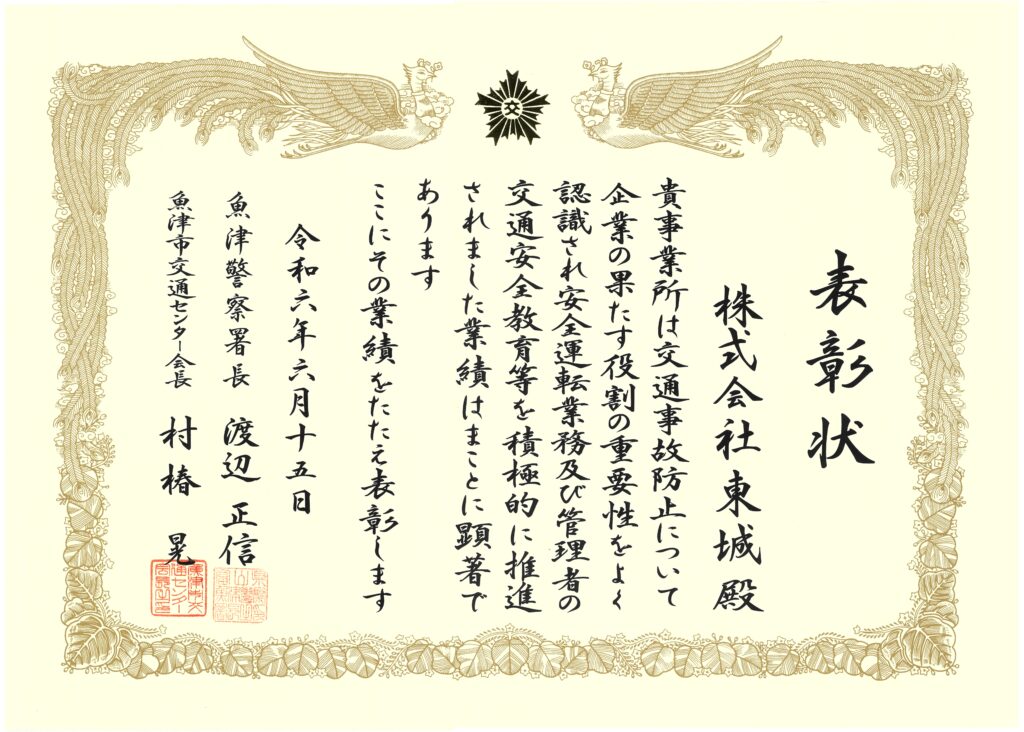 交
表彰状
株式会社東城殿
貴事業所は交通事故防止について
企業の果たす役割の重要性をよく
認識され安全運転業務及び管理者の
交通安全教育等を積極的に推進
されました業績はまことに顕著で
あります
ここにその業績をたたえ表彰します
令和六年六月十五日
魚津警察署長 渡辺正信
魚津市交通センター会長 村椿晃